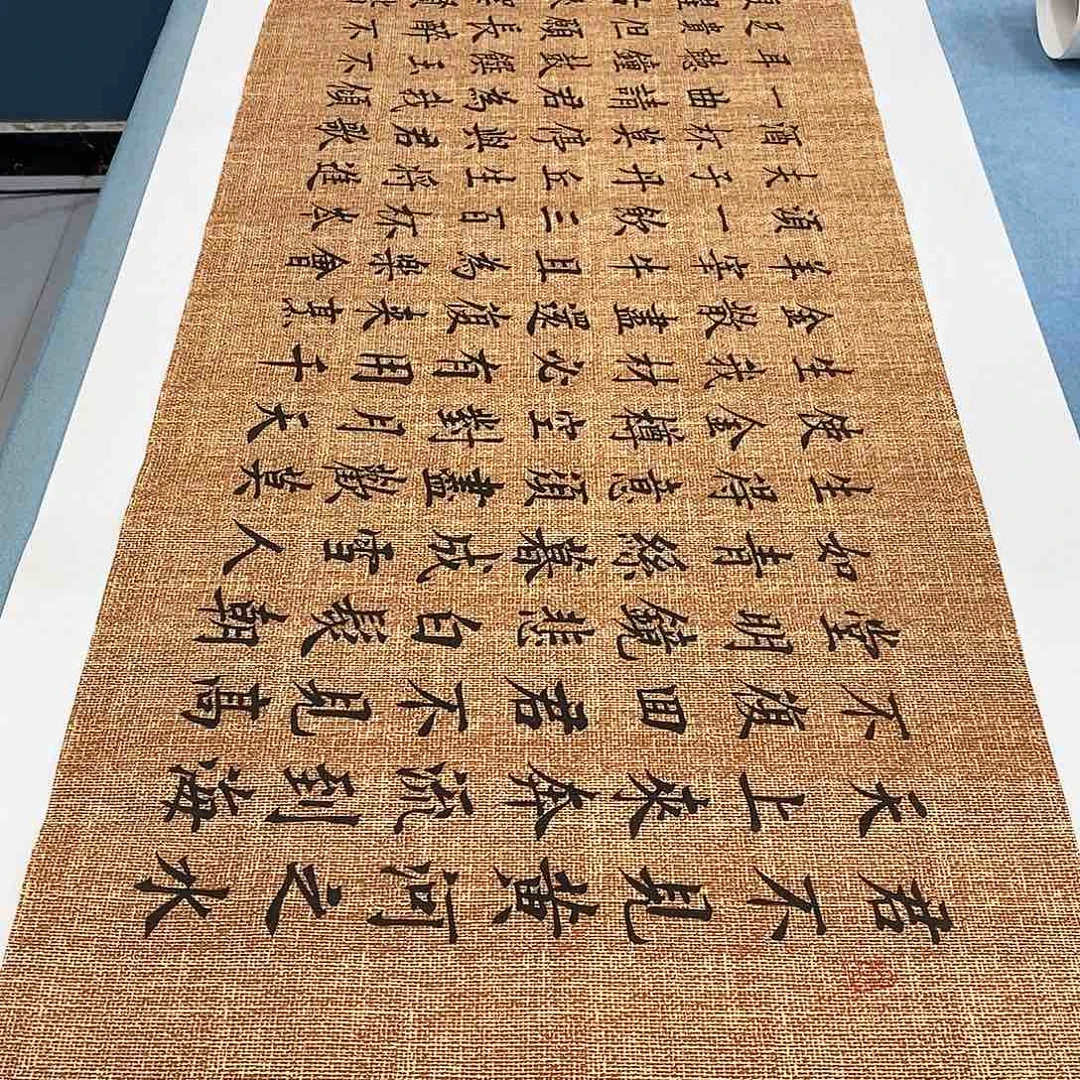 君不見黃河之水
天上來奔流到海
不復回君不見高
堂明鏡悲白髮朝
如青絲暮成雪人
生得意須盡歡莫
使金樽空對月天
生我材必有用千
金散盡還復來烹
羊宰牛且為樂會
須一飲三百杯岑
夫子丹丘生將進
酒杯莫停與君歌
一曲請君為我傾
耳聽鐘鼓饌玉不
足貴但願長醉不